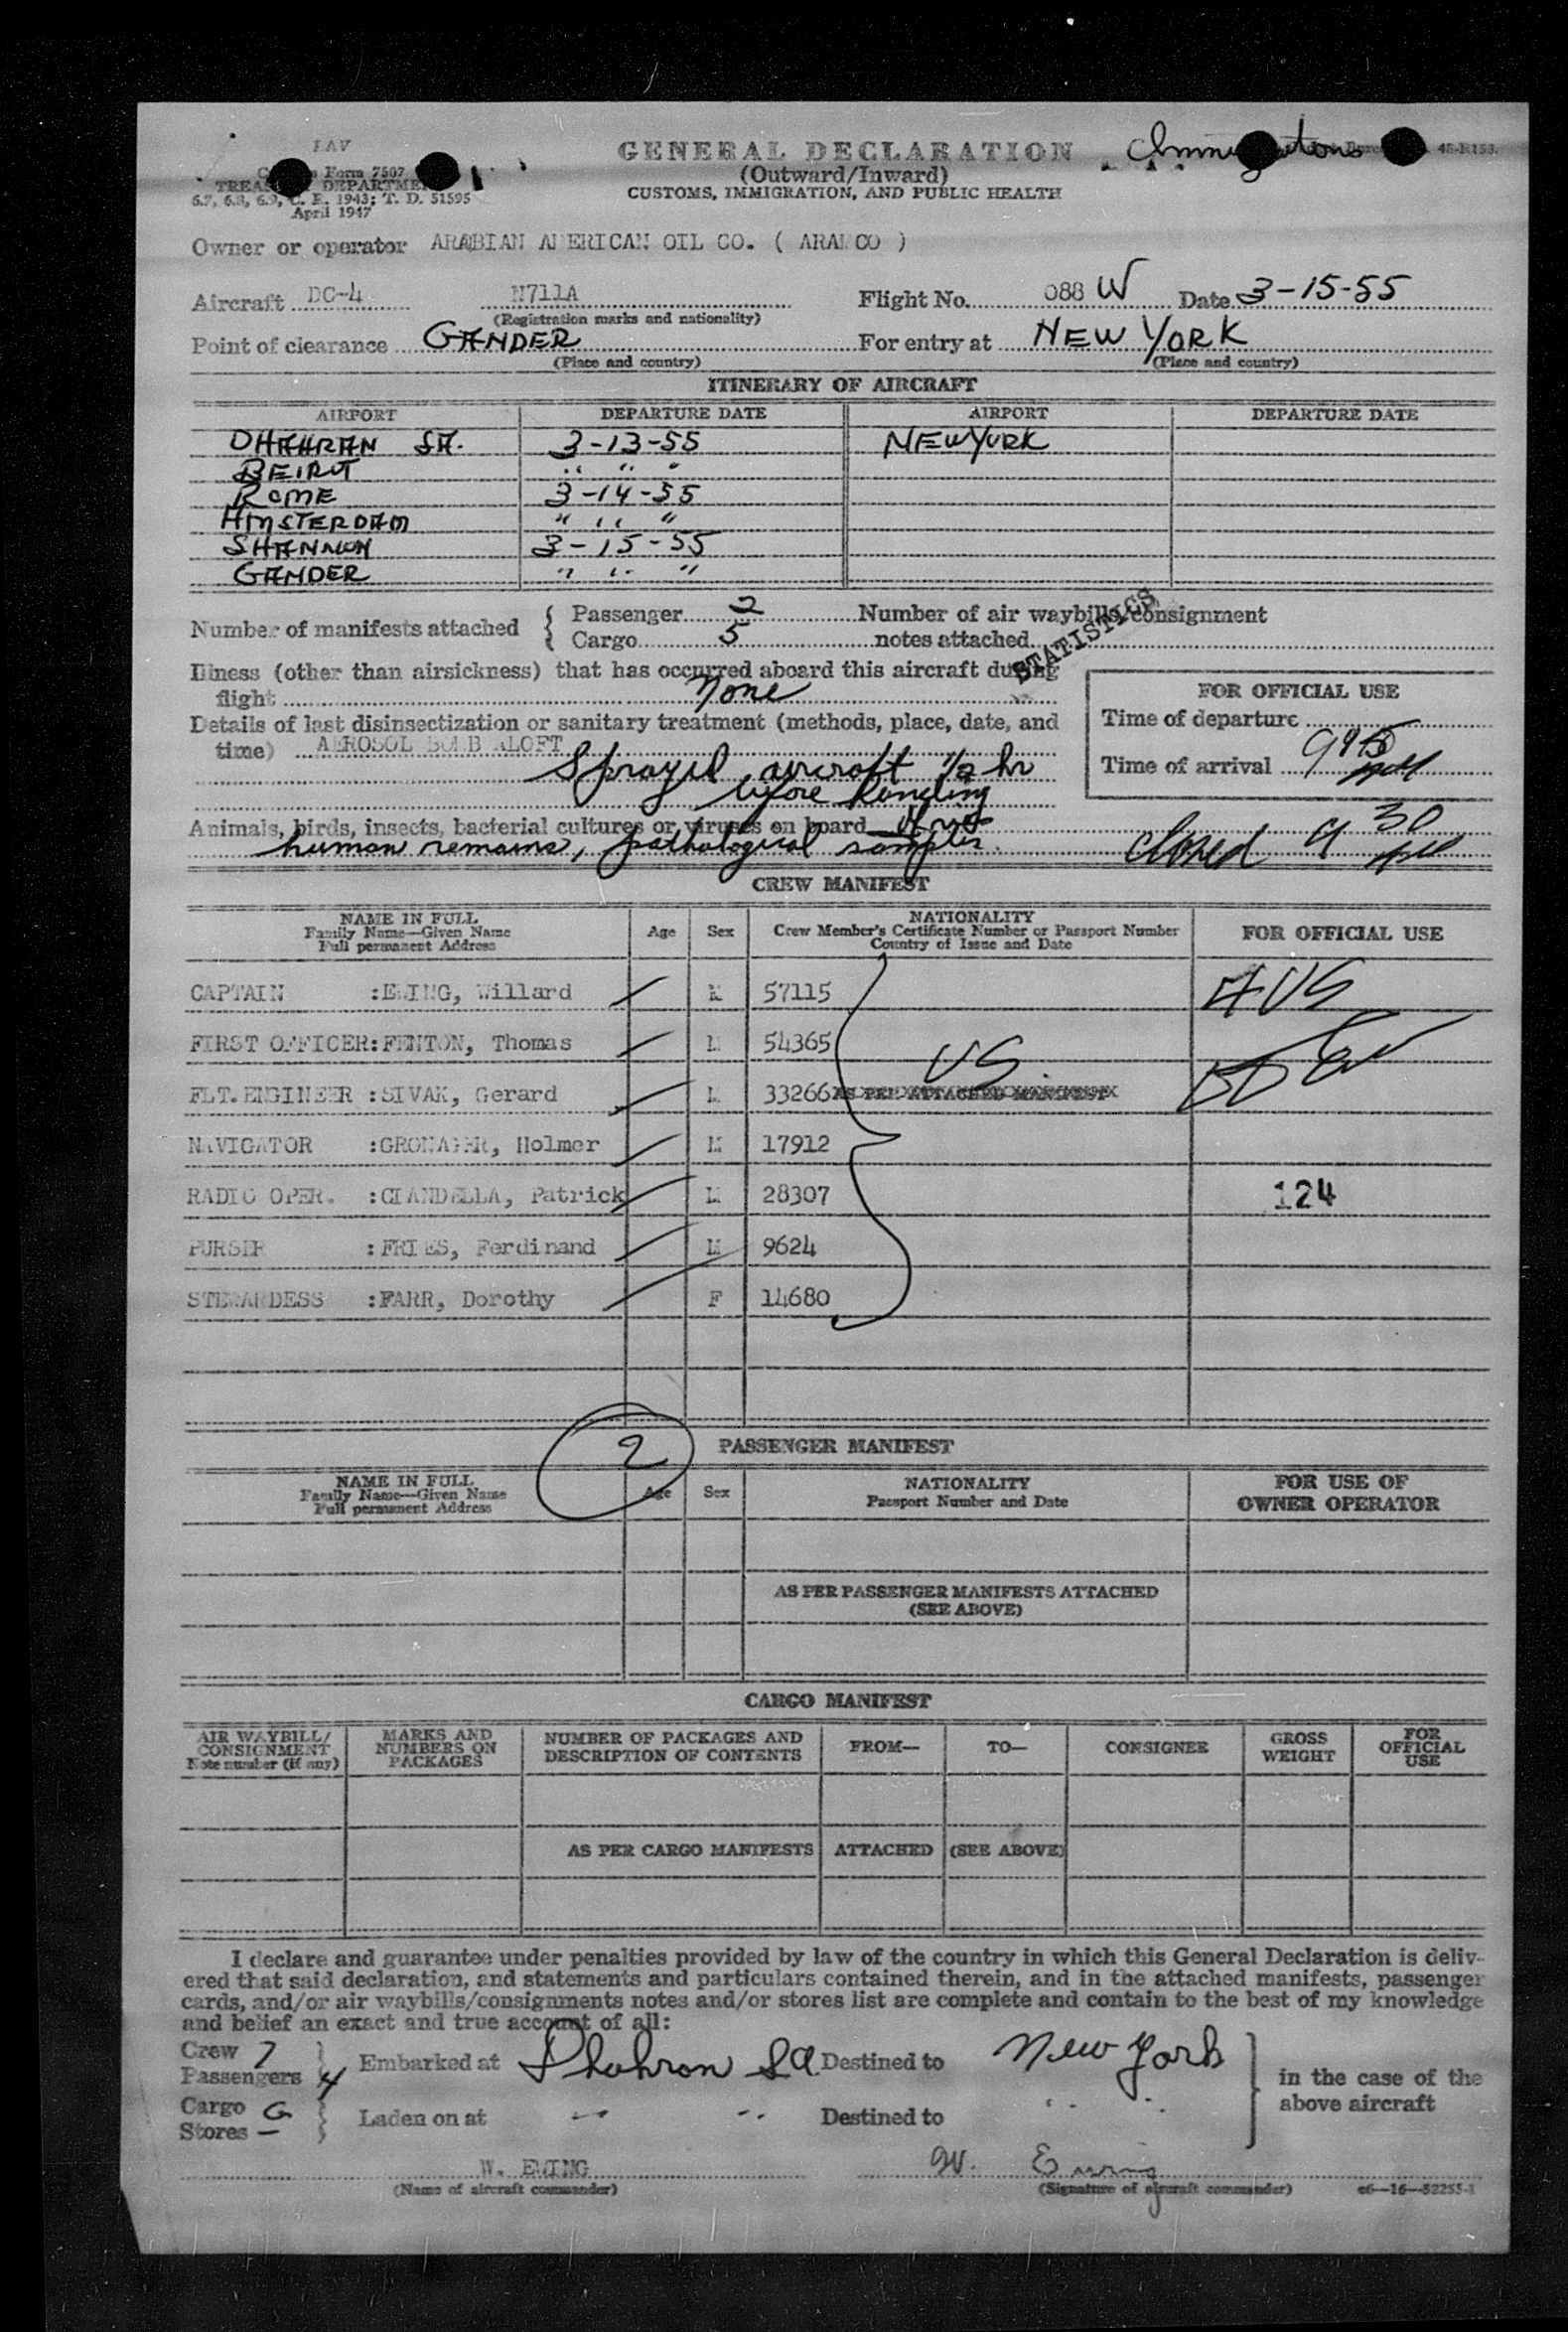 LAV
Form 7507
TREAS DEPARTME
6.7, 6.8, 6.9, C. R. 1943; T. D. 51595
April 1947
GENERAL DECLARATION
(Outward/Inward)
CUSTOMS, IMMIGRATION, AND PUBLIC HEALTH
Owner or operator ARABIAN AMERICAN OIL CO. ( ARAMCO )
Aircraft DC-4 N711A Flight No. 088 W Date 3-15-55
(Registration marks and nationality)
Point of clearance GANDER For entry at NEW YORK
(Place and country) (Place and country)
ITINERARY OF AIRCRAFT
AIRPORT DEPARTURE DATE AIRPORT DEPARTURE DATE
DHAHRAN SA. 3-13-55 NEW YORK
BEIRUT " " "
ROME 3-14-55
AMSTERDAM " " "
SHANNON 3-15-55
GANDER " " "
Number of manifests attached { Passenger 2 Number of air waybills/consignment
Cargo 5 notes attached
STATISTICS
Illness (other than airsickness) that has occurred aboard this aircraft during
flight None
FOR OFFICIAL USE
Details of last disinsectization or sanitary treatment (methods, place, date, and
time) AEROSOL BOMB ALOFT
Time of departure
Sprayed aircraft 1/2 hr
Time of arrival 945
before landing
Animals, birds, insects, bacterial cultures or viruses on board
human remains, pathological samples.
Closed 9 30
CREW MANIFEST
NAME IN FULL
Family Name—Given Name
Full permanent Address
Age Sex
NATIONALITY
Crew Member's Certificate Number or Passport Number
Country of Issue and Date
FOR OFFICIAL USE
CAPTAIN :EWING, Willard M 57115
FIRST OFFICER:FENTON, Thomas M 54365
US.
FLT.ENGINEER :SIVAK, Gerard M 33266 AS PER ATTACHED MANIFEST
NAVIGATOR :GRONAGER, Holmer M 17912
RADIO OPER. :CIANDELLA, Patrick M 28307 124
PURSER :FRIES, Ferdinand M 9624
STEWARDESS :FARR, Dorothy F 14680
2
PASSENGER MANIFEST
NAME IN FULL
Family Name—Given Name
Full permanent Address
Age Sex
NATIONALITY
Passport Number and Date
FOR USE OF
OWNER OPERATOR
AS PER PASSENGER MANIFESTS ATTACHED
(SEE ABOVE)
CARGO MANIFEST
AIR WAYBILL/
CONSIGNMENT
Note number (if any)
MARKS AND
NUMBERS ON
PACKAGES
NUMBER OF PACKAGES AND
DESCRIPTION OF CONTENTS
FROM— TO— CONSIGNEE
GROSS
WEIGHT
FOR
OFFICIAL
USE
AS PER CARGO MANIFESTS ATTACHED (SEE ABOVE)
I declare and guarantee under penalties provided by law of the country in which this General Declaration is deliv-
ered that said declaration, and statements and particulars contained therein, and in the attached manifests, passenger
cards, and/or air waybills/consignments notes and/or stores list are complete and contain to the best of my knowledge
and belief an exact and true account of all:
Crew 7
Passengers 4 Embarked at Dhahran SA Destined to New York
in the case of the
above aircraft
Cargo G
Stores — Laden on at " " Destined to " "
W. EWING W. Ewing
(Name of aircraft commander) (Signature of aircraft commander) c6—16—52255-1